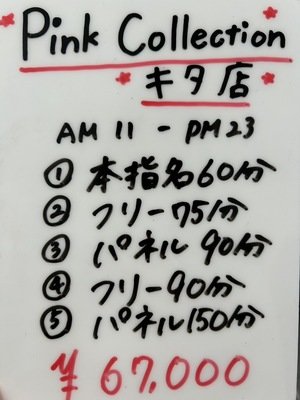 Pink Collection
キタ店
AM 11 - PM 23
① 本指名60分
② フリー75分
③ パネル 90分
④ フリー90分
⑤ パネル150分
¥ 67,000